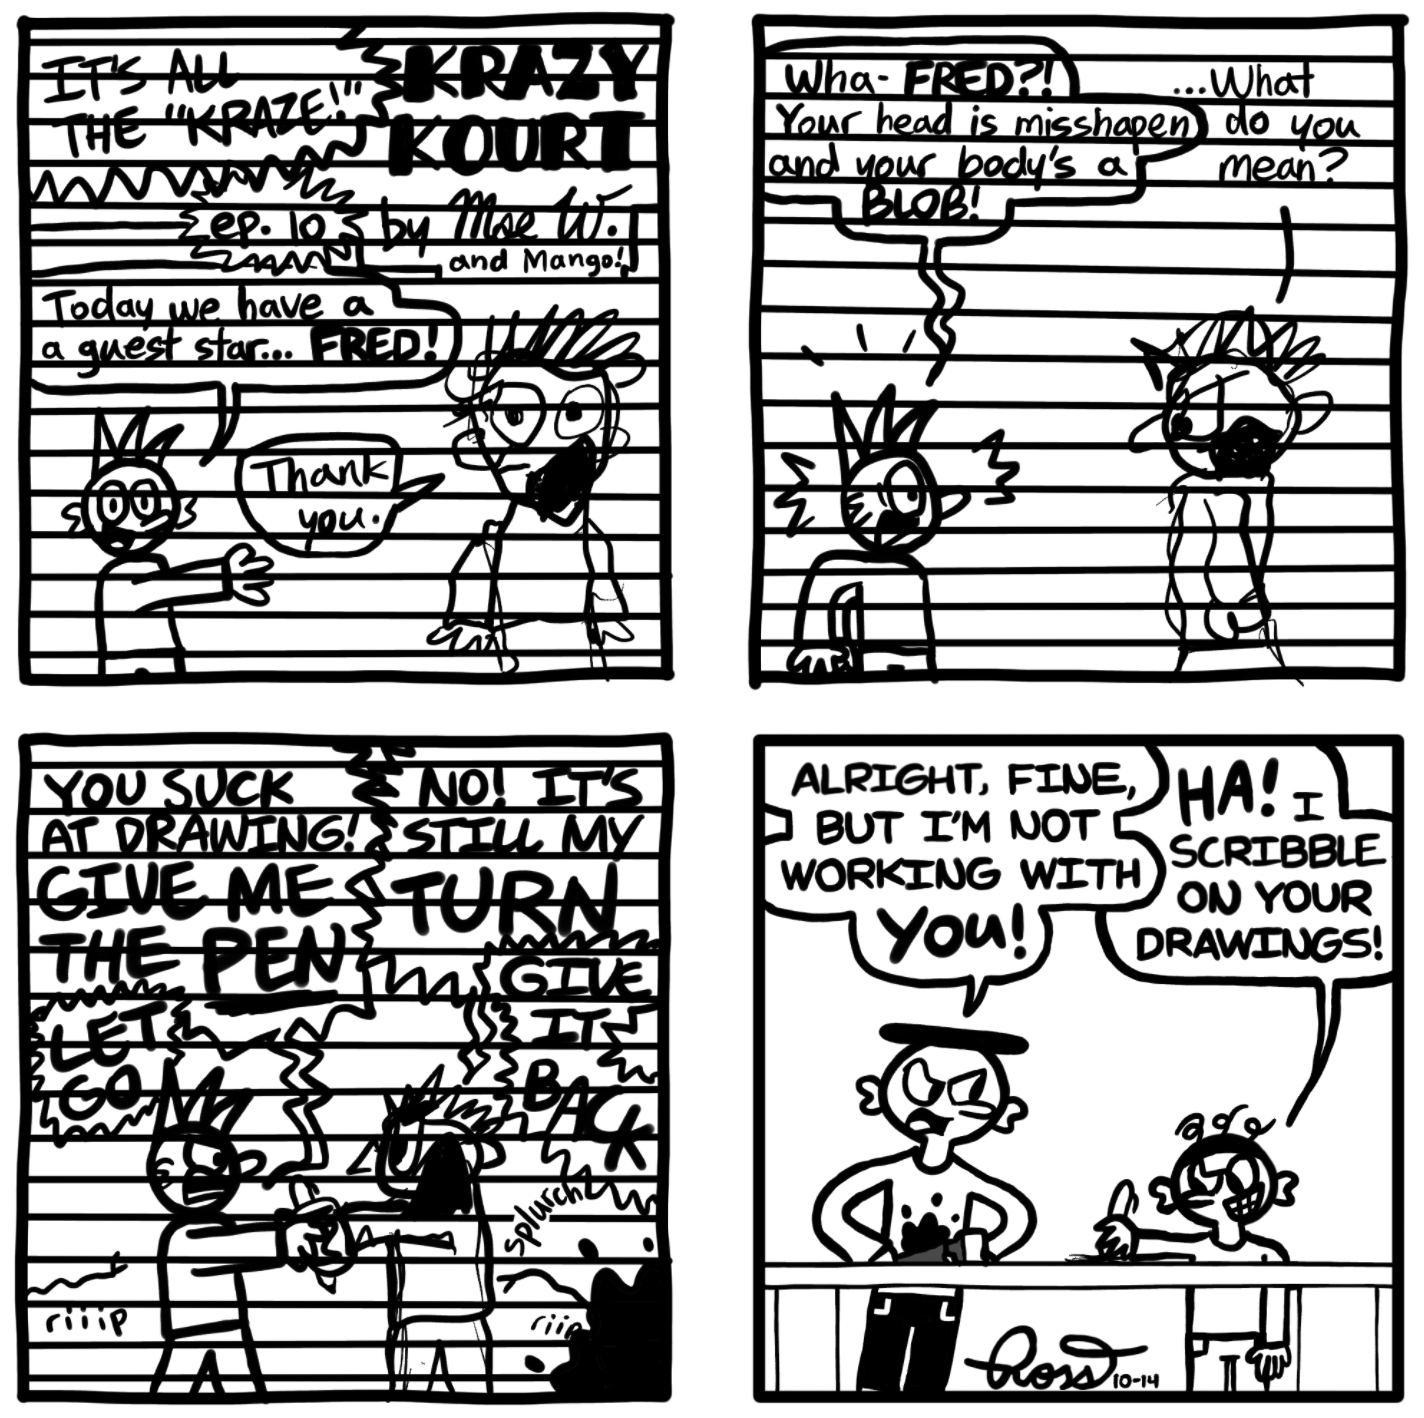 IT'S ALL
THE "KRAZE!"
KRAZY
KOURT
ep. 10
by Moe W.
and Mango!
Today we have a
a guest star... FRED!
Thank
you.
Wha- FRED?!
Your head is misshapen
and your body's a
BLOB!
...What
do you
mean?
YOU SUCK
AT DRAWING!
GIVE ME
THE PEN
NO! IT'S
STILL MY
TURN
LET
GO
GIVE
IT
BACK
riiip
splurch
riiip
ALRIGHT, FINE,
BUT I'M NOT
WORKING WITH
YOU!
HA! I
SCRIBBLE
ON YOUR
DRAWINGS!
Ross 10-14